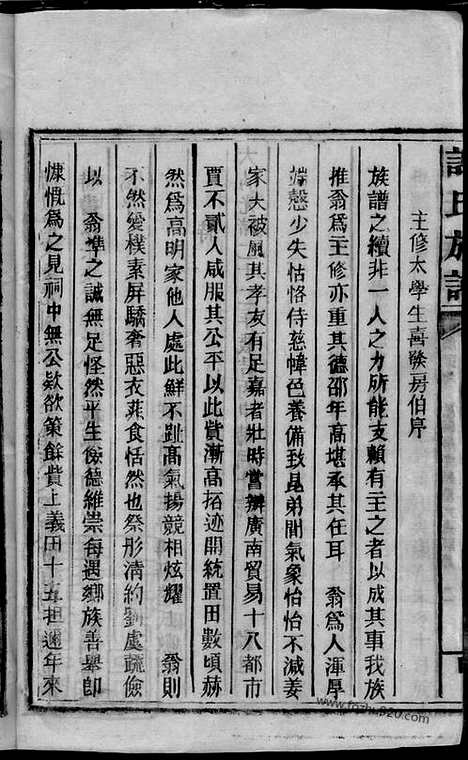 氏族譜
主修太學生喜𤋮房伯序
族譜之續非一人之力所能支賴有主之者以成其事我族
推翁為主修亦重其德邵年高堪承其任耳 翁為人渾厚
端慤少失怙恪侍慈幃色養備致昆弟間氣象怡怡不減姜
家大被風其孝友有足嘉者壯時嘗辦廣南貿易十八都市
賈不貳人咸服其公平以此貲漸高拓迹開統置田數頃赫
然為高明家他人處此鮮不趾高氣揚競相炫耀 翁則
不然愛樸素屏驕奢惡衣菲食恬然也祭形清約劉處蔬儉
以 翁準之誠無足怪然平生儉德維崇每遇鄉族善舉即
慷慨為之見祠中無公欵欲策餘貲上義田十五担邇年來
www.fozhu920.com